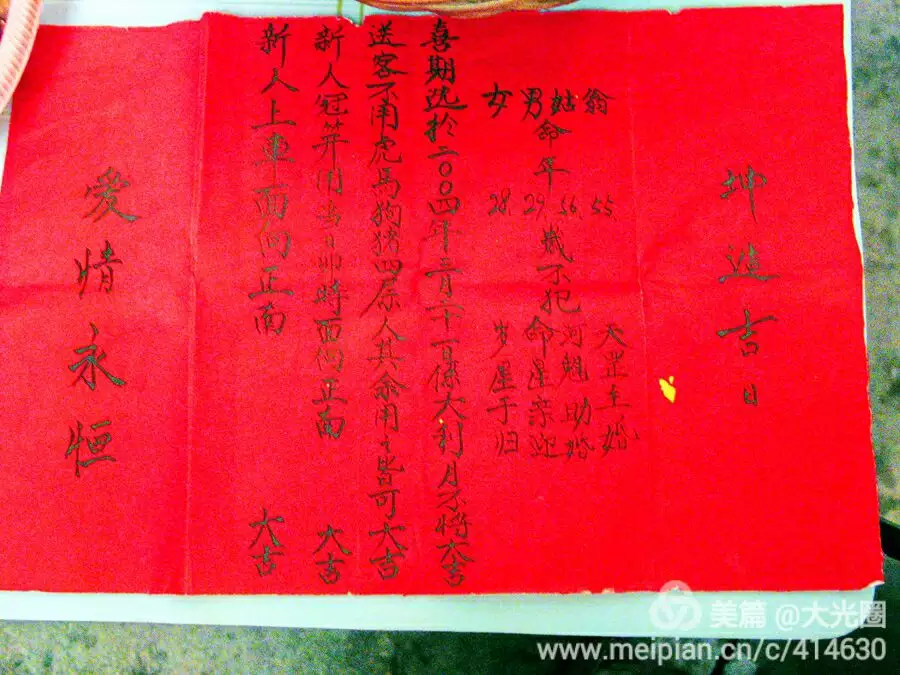 坤造吉日
翁 55 天罡主婚
姑 56 河魁助婚
男命年 29 岁不犯命星亲迎
女 28 岁星于归
喜期选於二〇〇四年二月二十一日係大利月不将大吉
送客不用虎馬狗猪四属人其余用之皆可大吉
新人冠笄用当日卯時面向正南 大吉
新人上車面向正南 大吉
爱情永恒
美篇 @大光圈
www.meipian.cn/c/414630